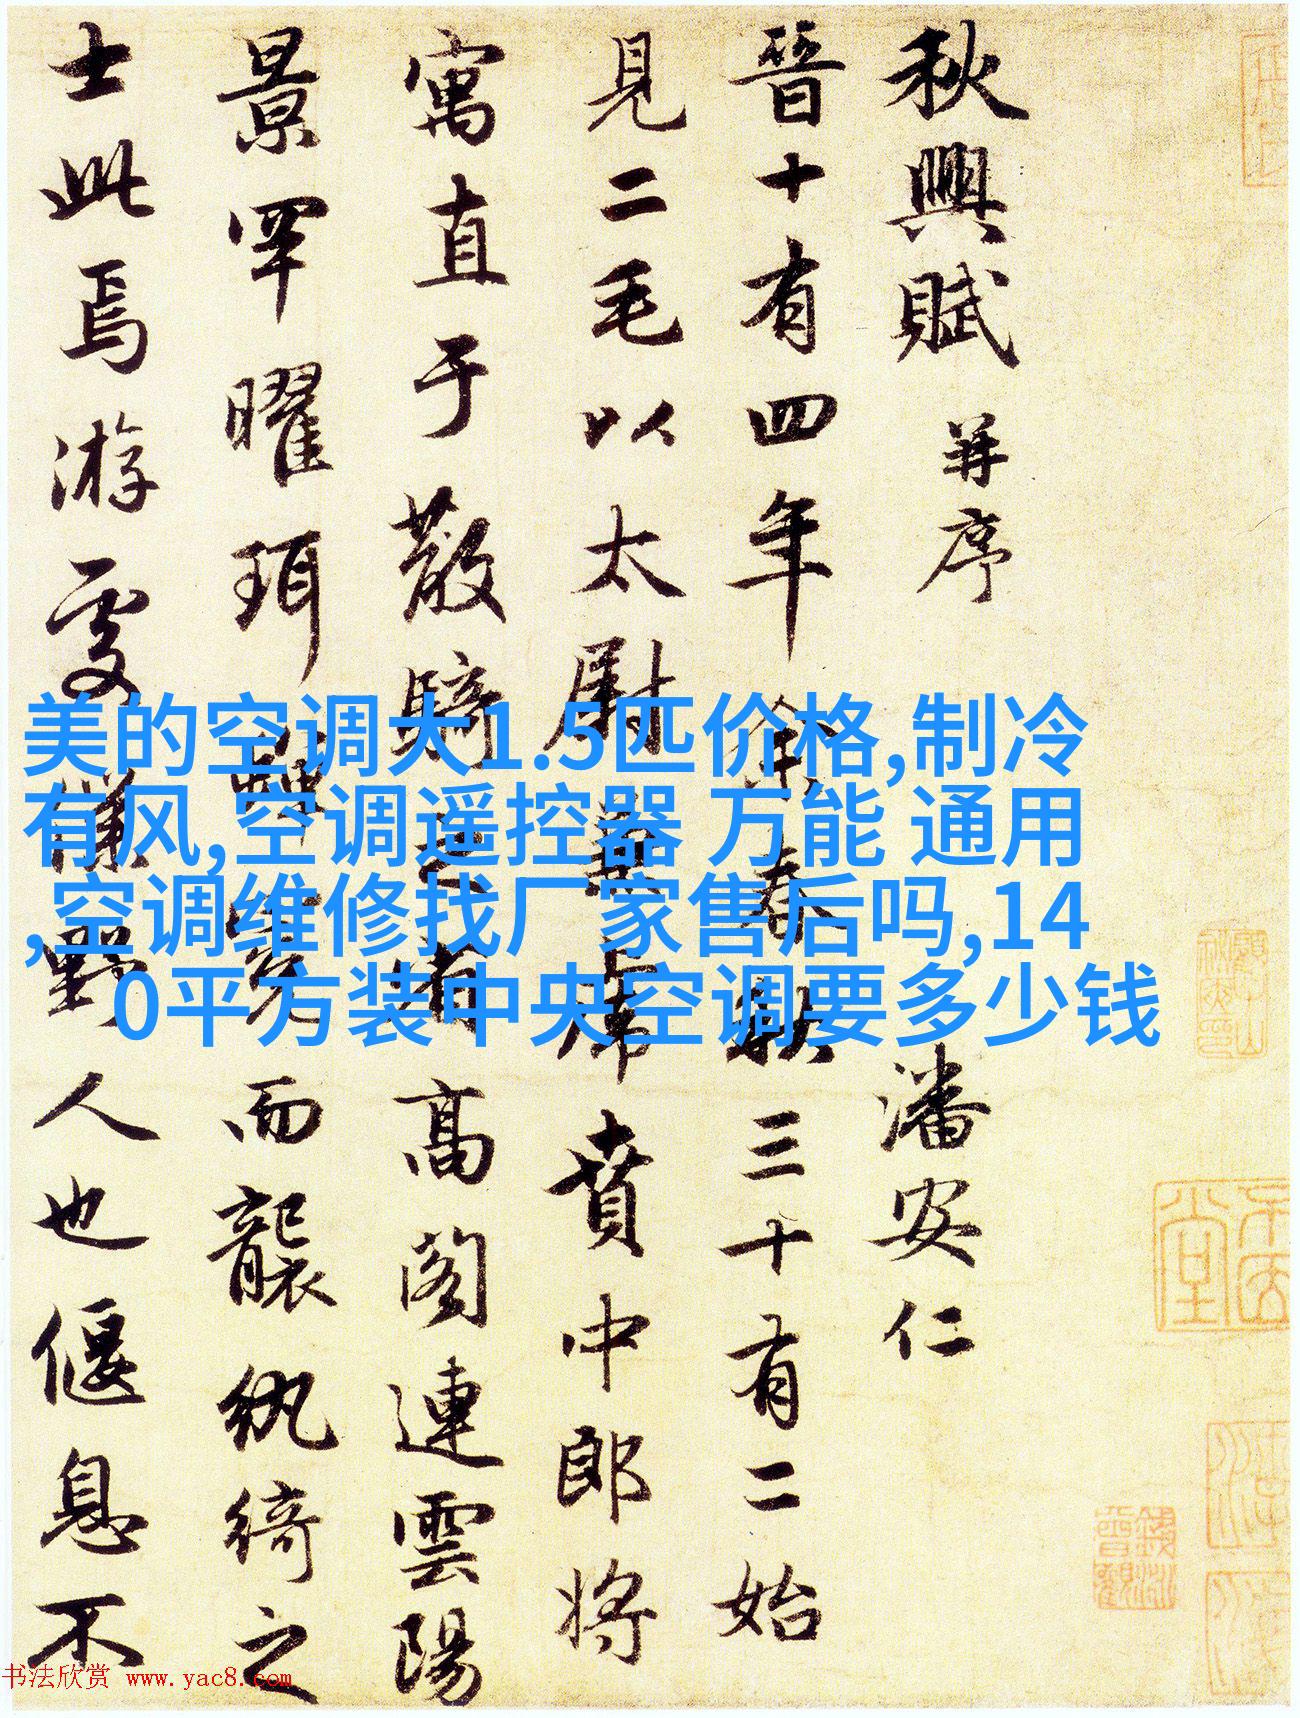 秋興賦 并序 潘安仁
晉十有四年余春秋三十有二始
見二毛以太尉兼虎賁中郎将
寓直于散騎之省高閣連雲陽
景罕曜珥蟬冕而襲紈綺之
士此焉游處僕野人也偃息不
美的空调大1.5匹价格,制冷
有风,空调遥控器 万能 通用
,空调维修找厂家售后吗,14
0平方装中央空调要多少钱
书法欣赏 www.yac8.com